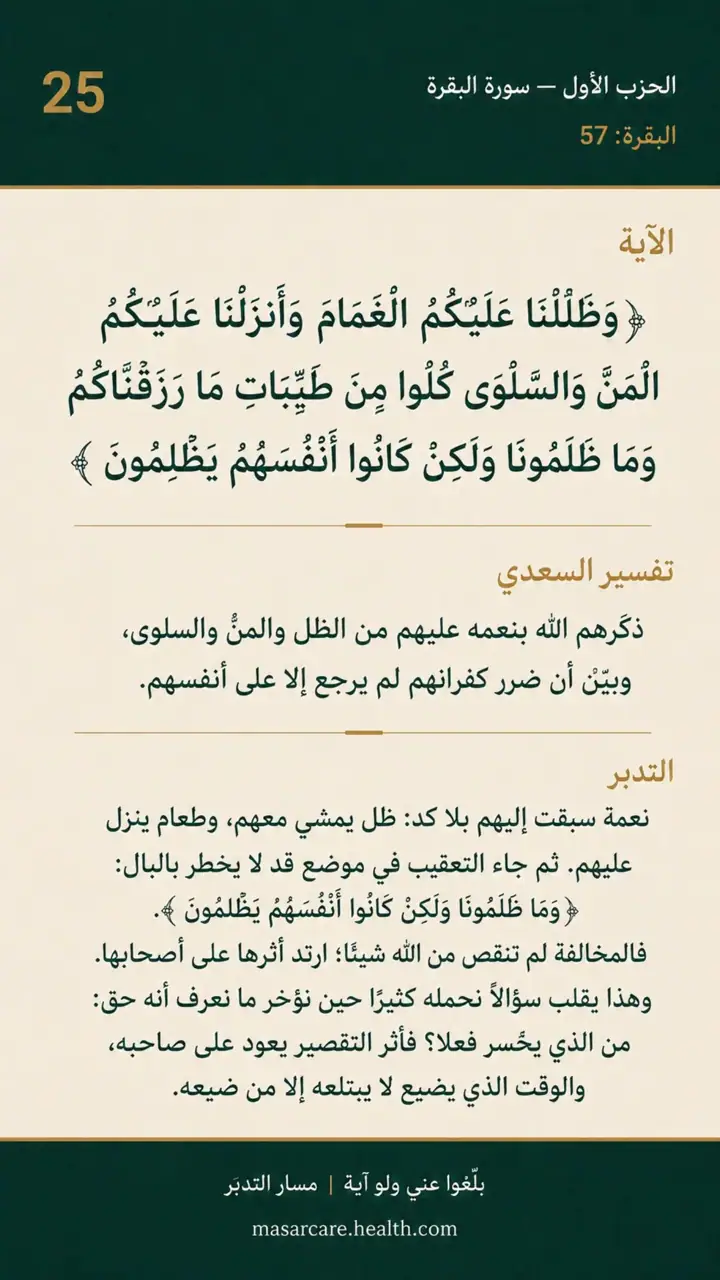 الحزب الأول — سورة البقرة
25
البقرة: 57
الآية
﴿وَظَلَّلْنَا عَلَيْكُمُ الْغَمَامَ وَأَنزَلْنَا عَلَيْكُمُ
الْمَنَّ وَالسَّلْوَى كُلُوا مِنَ طَيِّبَاتِ مَا رَزَقْنَّاكُمُ
وَمَا ظَلَمُونَا وَلَكِنْ كَانُوا أَنْفُسَهُمُ يَظْلِمُونَ ﴾
تفسير السعدي
ذكَرهم الله بنعمه عليهم من الظل والمنُّ والسلوى،
وبيّنْ أن ضرر كفرانهم لم يرجع إلا على أنفسهم.
التدبر
نعمة سبقت إليهم بلا كد: ظل يمشي معهم، وطعام ينزل
عليهم. ثم جاء التعقيب في موضع قد لا يخطر بالبال:
﴿وَمَا ظَلَمُونَا وَلَكِنْ كَانُوا أَنْفُسَهُمُ يَظْلمُونَ ﴾.
فالمخالفة لم تنقص من الله شيئًا؛ ارتد أثرها على أصحابها.
وهذا يقلب سؤالاً نحمله كثيرًا حين نؤخر ما نعرف أنه حق:
من الذي يخًسر فعلا؟ فأثر التقصير يعود على صاحبه،
والوقت الذي يضيع لا يبتلعه إلا من ضيعه.
بلّغوا عني ولو آية | مسار التدبَر
masarcare.health.com